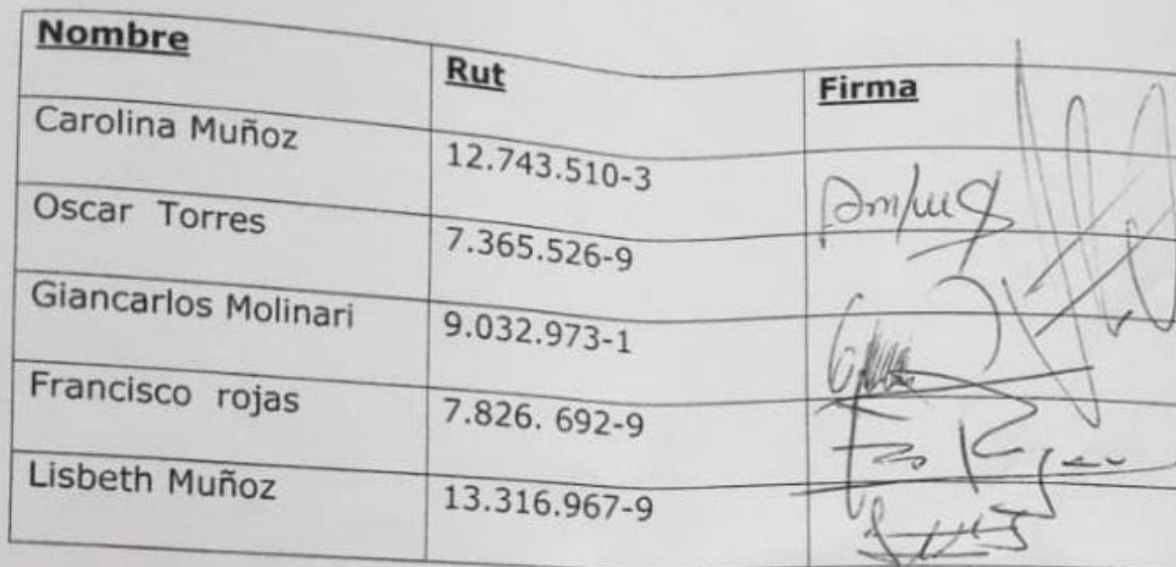 Nombre Rut Firma
Carolina Muñoz 12.743.510-3
Oscar Torres 7.365.526-9
Giancarlos Molinari 9.032.973-1
Francisco rojas 7.826. 692-9
Lisbeth Muñoz 13.316.967-9